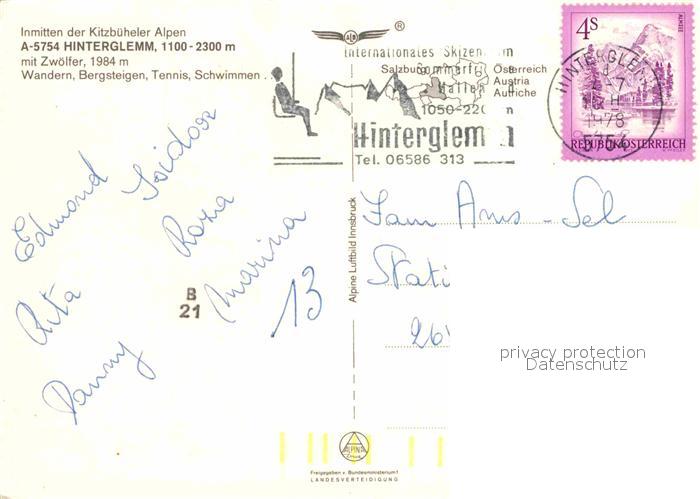 Inmitten der Kitzbüheler Alpen
A-5754 HINTERGLEMM, 1100-2300 m
mit Zwölfer, 1984 m
Wandern, Bergsteigen, Tennis, Schwimmen .
Internationales Skizen m
Salzburg Sommerfri
Österreich
Austria
Autriche
Hallen
1050-220 m
Hinterglemm
Tel. 06586 313
4S
ALMSEE
REPUBLIK ÖSTERREICH
HINTERGLEMM
1978
5754
Edmond
Isidoor
Rita
Roza
Danny
Marina
13
B
21
Alpine Luftbild Innsbruck
Fam Ams - Sel
Stati
26
privacy protection
Datenschutz
ALPINE
Freigegeben v. Bundesministerium f.
LANDESVERTEIDIGUNG